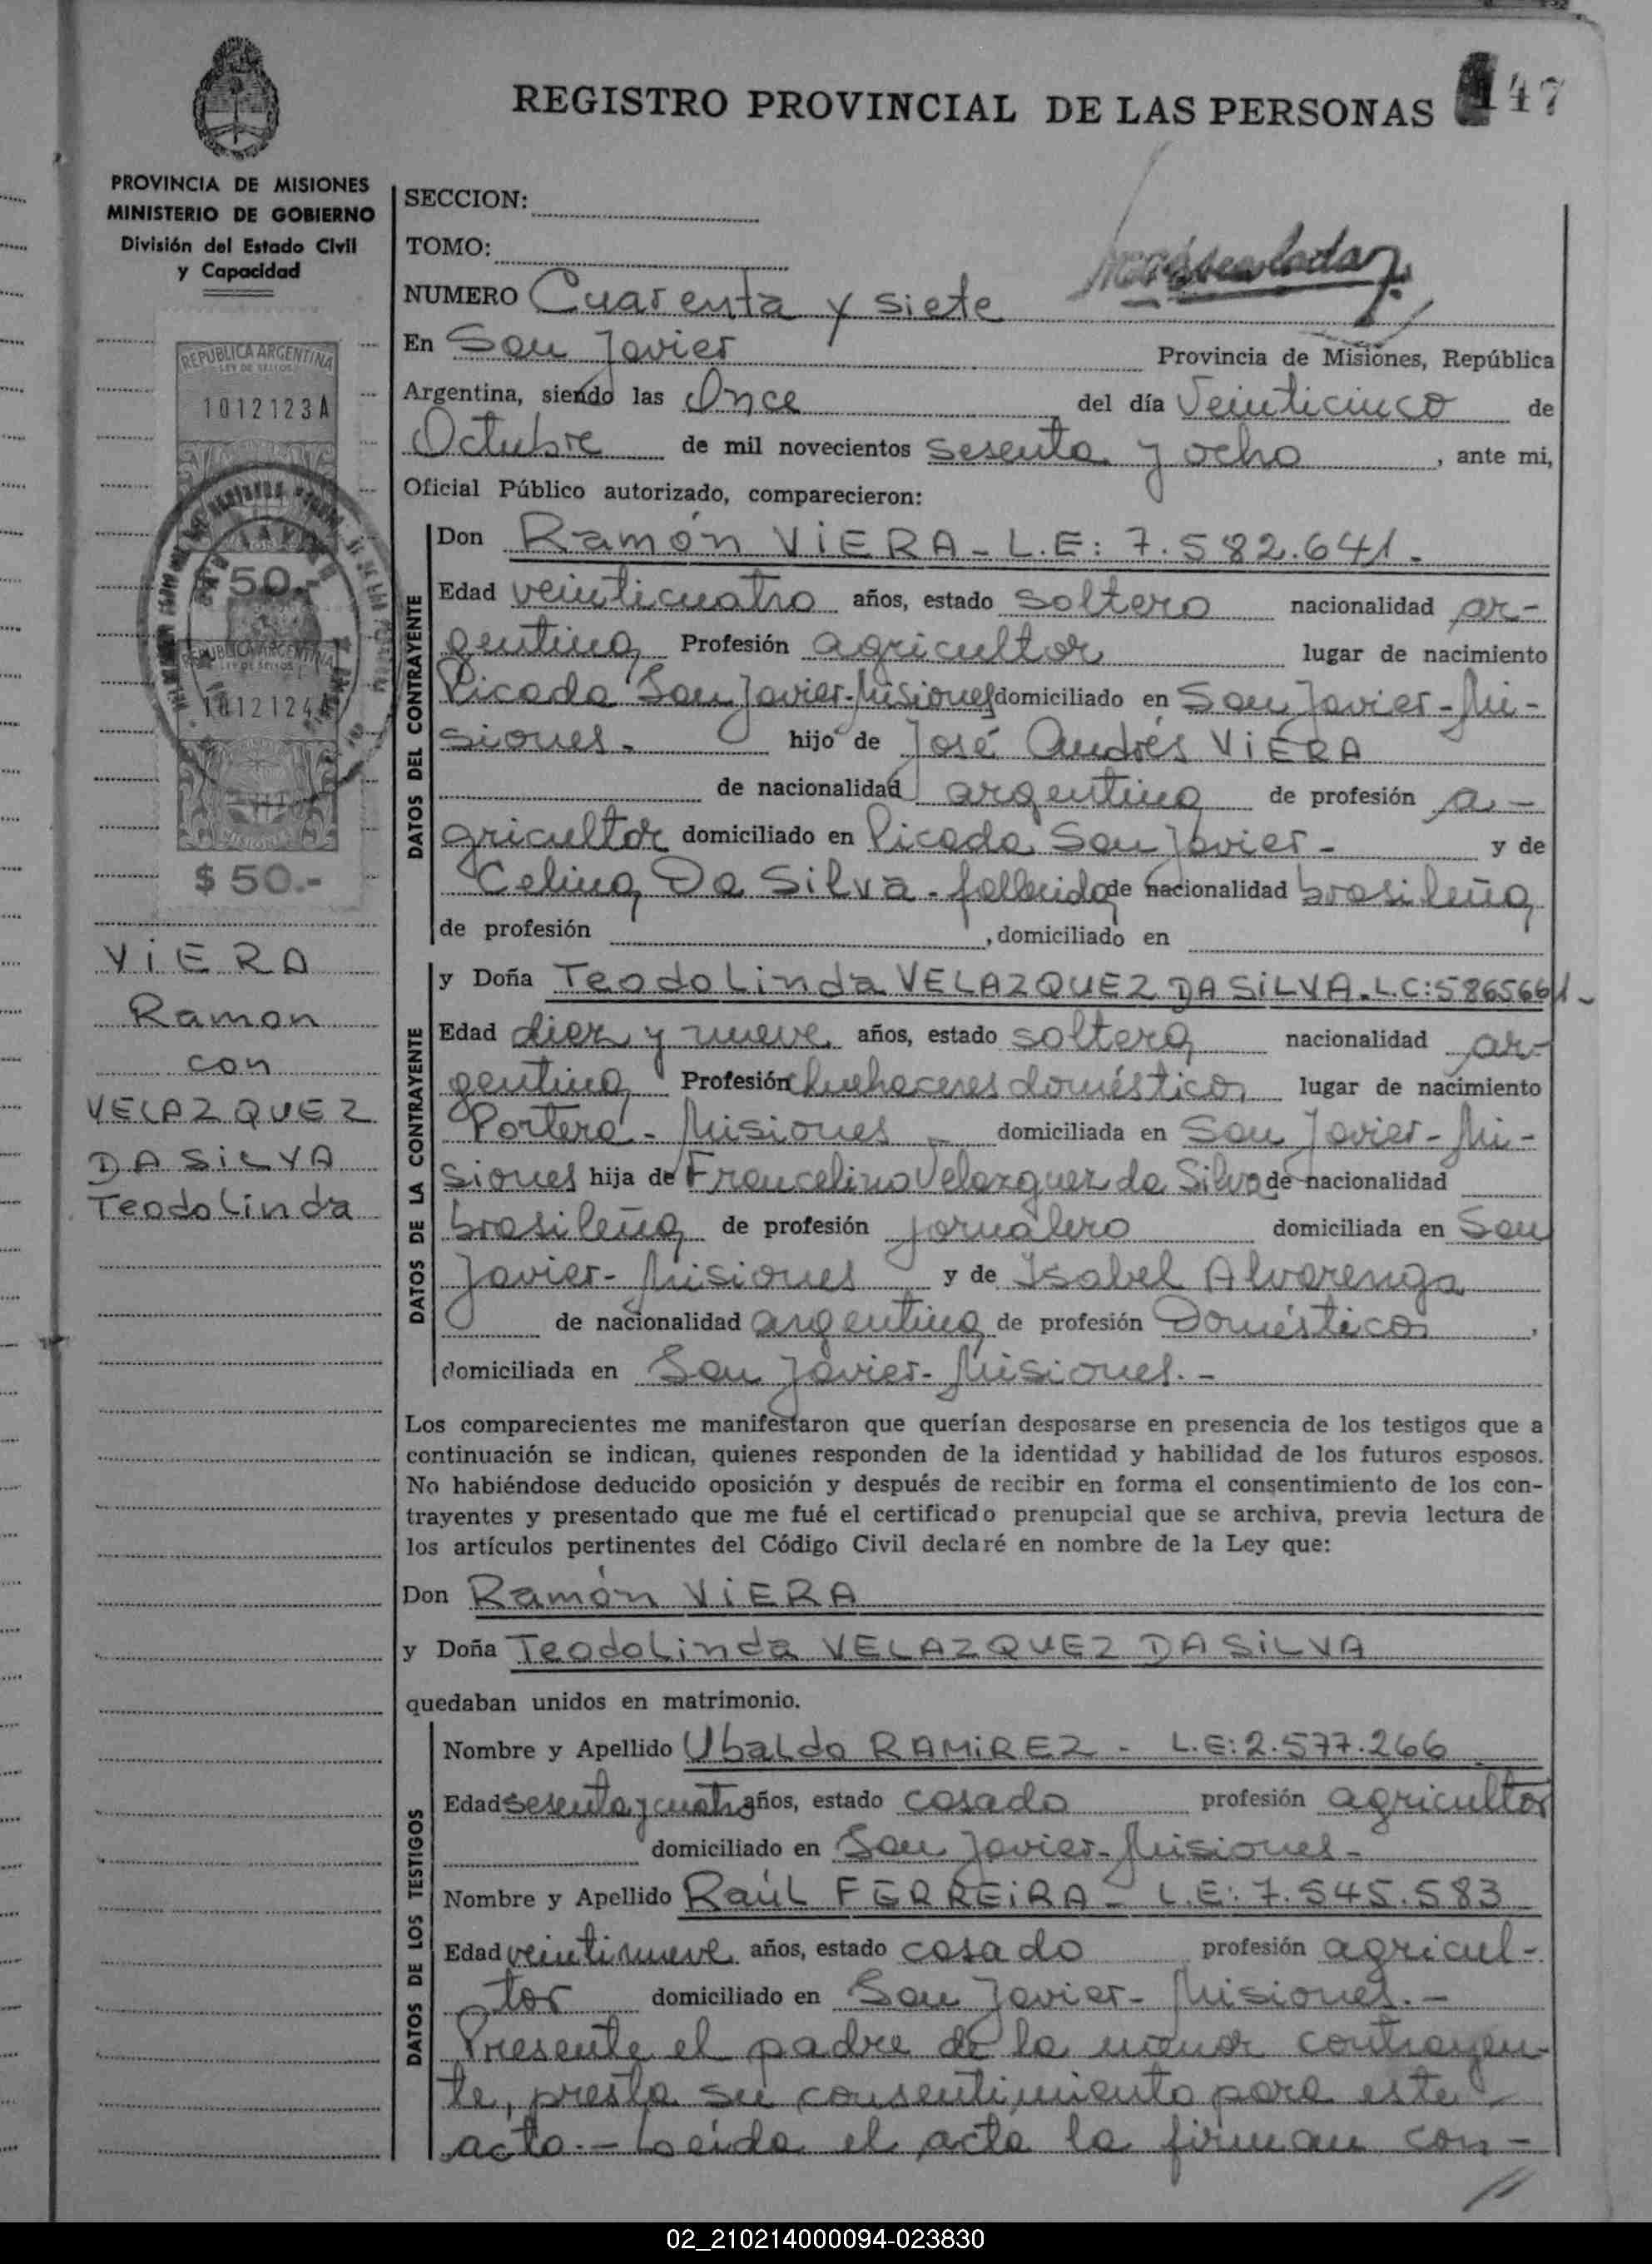 REGISTRO PROVINCIAL DE LAS PERSONAS 147
PROVINCIA DE MISIONES
MINISTERIO DE GOBIERNO
División del Estado Civil
y Capacidad
REPUBLICA ARGENTINA
LEY DE SELLOS
1012123A
50.-
REPUBLICA ARGENTINA
LEY DE SELLOS
1012124A
$ 50.-
VIERA
Ramon
con
VELAZQUEZ
DA SILVA
Teodolinda
SECCION:
TOMO:
NUMERO Cuarenta y siete
En San Javier Provincia de Misiones, República
Argentina, siendo las Once del día Veinticinco de
Octubre de mil novecientos sesenta y ocho, ante mi,
Oficial Público autorizado, comparecieron:
DATOS DEL CONTRAYENTE
Don Ramón VIERA - L.E: 7.582.641.
Edad veinticuatro años, estado soltero nacionalidad ar-
gentina Profesión agricultor lugar de nacimiento
Picada San Javier-Misiones domiciliado en San Javier-Mi-
siones.- hijo de José Andrés VIERA
de nacionalidad argentina de profesión a-
gricultor domiciliado en Picada San Javier- y de
Celina Da Silva - fallecida de nacionalidad brasileña
de profesión , domiciliado en
DATOS DE LA CONTRAYENTE
y Doña Teodolinda VELAZQUEZ DA SILVA.L.C:5865661-
Edad diez y nueve años, estado soltera nacionalidad ar-
gentina Profesión Quehaceres domésticos lugar de nacimiento
Portera - Misiones - domiciliada en San Javier-Mi-
siones hija de Francelino Velazquez da Silva de nacionalidad
brasileña de profesión jornalero domiciliada en San
Javier-Misiones y de Isabel Alvarenga
de nacionalidad argentina de profesión Domésticos,
domiciliada en San Javier-Misiones.-
Los comparecientes me manifestaron que querían desposarse en presencia de los testigos que a
continuación se indican, quienes responden de la identidad y habilidad de los futuros esposos.
No habiéndose deducido oposición y después de recibir en forma el consentimiento de los con-
trayentes y presentado que me fué el certificado prenupcial que se archiva, previa lectura de
los artículos pertinentes del Código Civil declaré en nombre de la Ley que:
Don Ramón VIERA
y Doña Teodolinda VELAZQUEZ DA SILVA
quedaban unidos en matrimonio.
DATOS DE LOS TESTIGOS
Nombre y Apellido Ubaldo RAMIREZ - L.E: 2.577.266
Edad sesenta y cuatro años, estado casado profesión agricultor
domiciliado en San Javier-Misiones-
Nombre y Apellido Raúl FERREIRA - L.E: 7.545.583
Edad veintinueve años, estado casado profesión agricul-
tor domiciliado en San Javier- Misiones.-
Presente el padre de la menor contrayen-
te, presta su consentimiento para este
acto.- Leída el acta la firman con-
02_210214000094-023830